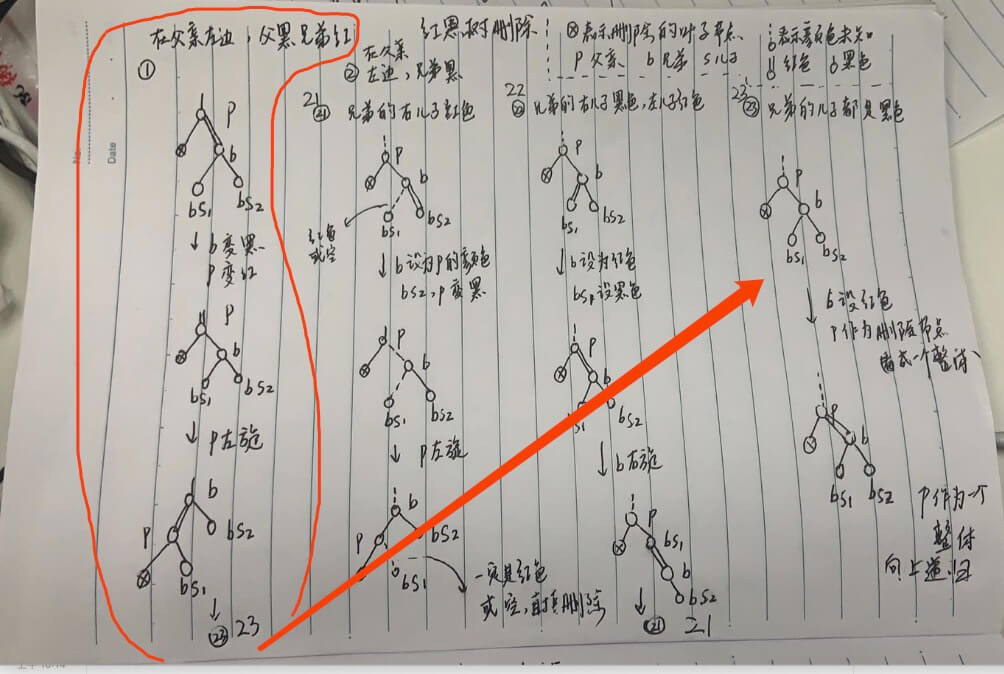 在父亲左边，父黑兄弟红
①
P
b
bS1
bS2
↓ b变黑
P变红
P
b
bS1
bS2
↓ P左旋
b
P
bS2
bS1
↓
㉓ 23
红黑树删除
ⓧ表示删除的叶子节点
P 父亲 b 兄弟 S儿子
表示颜色未知
红色 黑色
在父亲
② 左边，兄弟黑
21
㉑ 兄弟的右儿子红色
P
b
bS1
bS2
红色
或空
↓ b设为P的颜色
bS2，P变黑
P
b
bS1
bS2
↓ P左旋
b
P
bS2
bS1
一定是红色
或空，直接删除
22
㉒ 兄弟的右儿子黑色，左儿子红色
P
b
bS1
bS2
↓ b设为红色
bS1设黑色
P
b
S1
bS2
↓ b右旋
P
bS1
b
bS2
↓
㉑ 21
23
㉓ 兄弟的儿子都是黑色
P
b
bS1
bS2
↓ b设红色
P作为删除节点
看成一个整体
P
b
bS1
bS2
P作为一个
整体
向上递归
No.
Date